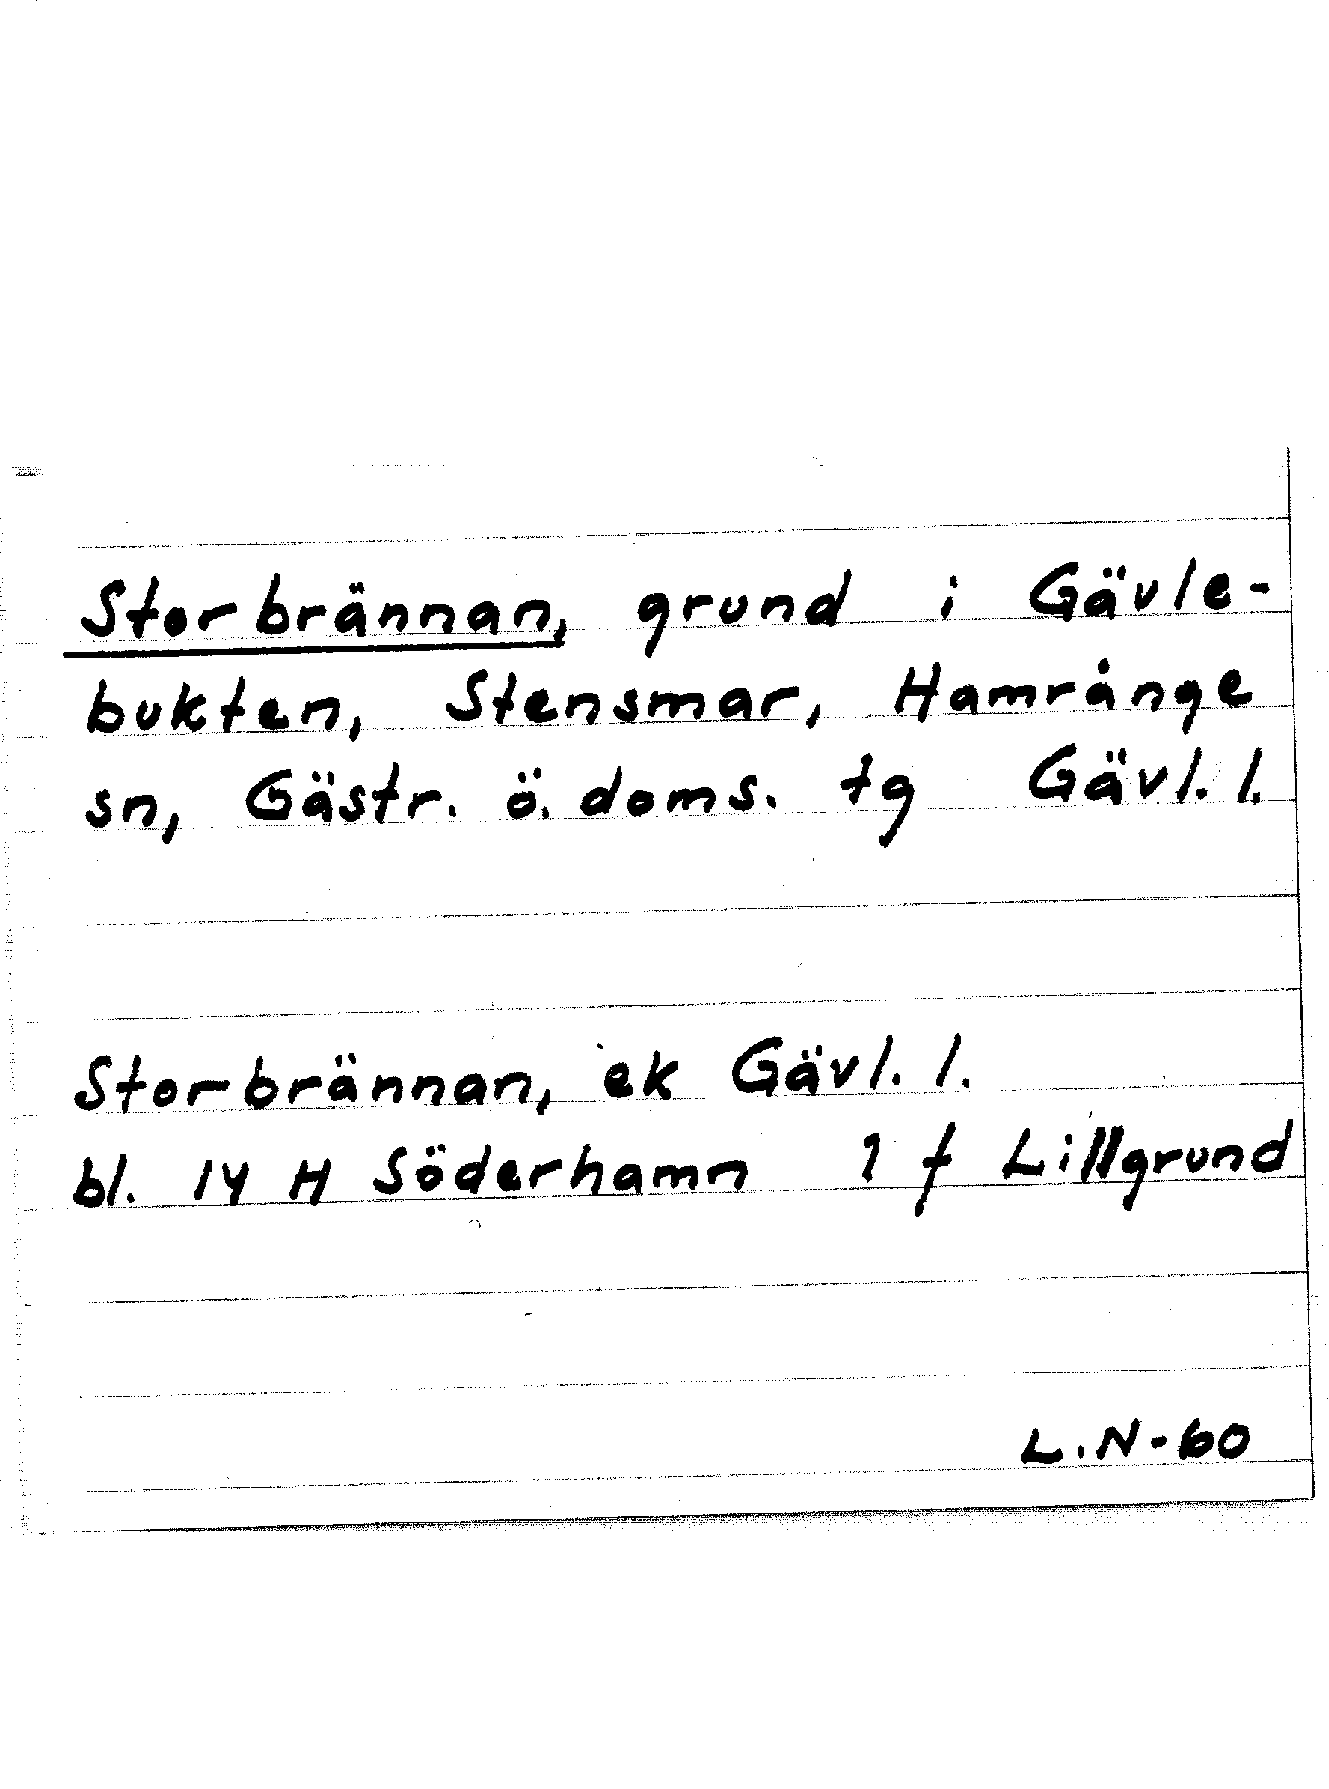 Storbrännan, grund i Gävle-
bukten, Stensmar, Hamrånge
sn, Gästr. ö. doms. tg Gävl. l.
Storbrännan, ek Gävl. l.
bl. 14 H Söderhamn 1 f Lillgrund
L.N-60